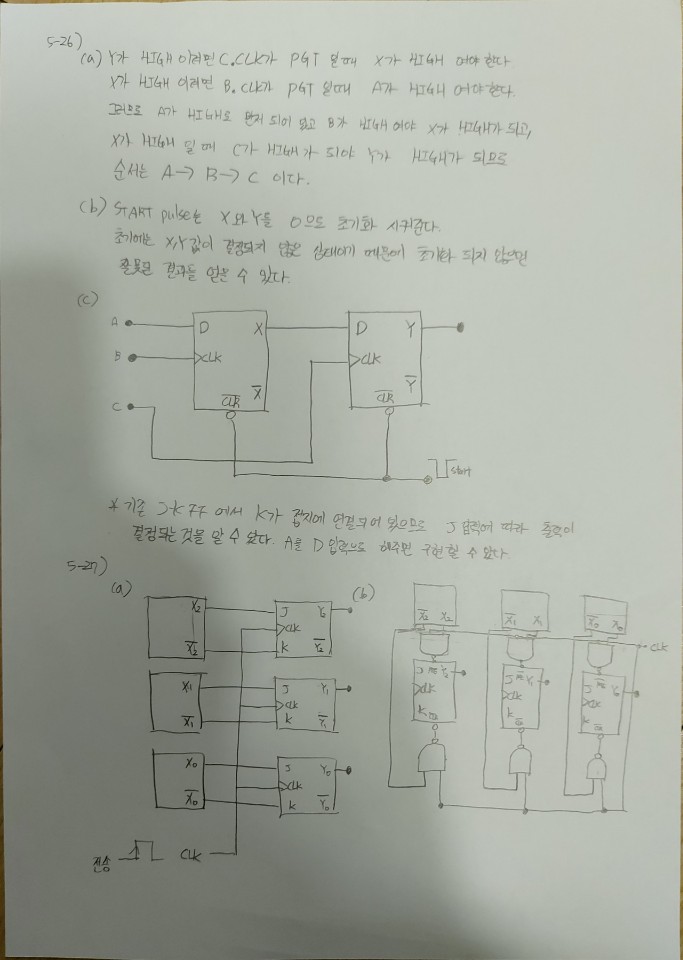 5-26)
(a) Y가 HIGH 이려면 C.CLK가 PGT 일때 X가 HIGH 여야 한다
X가 HIGH 이려면 B.CLK가 PGT 일때 A가 HIGH 여야한다.
그러므로 A가 HIGH로 먼저 되어 있고 B가 HIGH여야 X가 HIGH가 되고,
X가 HIGH 일 때 C가 HIGH가 되야 Y가 HIGH가 되므로
순서는 A→ B→ C 이다.
(b) START pulse는 X와 Y를 0으로 초기화 시켜준다.
초기에는 X,Y값이 결정되지 않은 상태이기 때문에 초기화 되지 않으면
잘못된 결과를 얻을 수 있다.
(c)
A D X D Y
B CLK CLK
X̅ Y̅
C̅L̅R̅ C̅L̅R̅
C
start
* 기존 J-K FF 에서 K가 접지에 연결되어 있으므로 J 입력에 따라 출력이
결정되는 것을 알 수 있다. A를 D입력으로 해주면 구현할 수 있다.
5-27)
(a)
X₂ J Y₂
CLK
X̅₂ K Y̅₂
X₁ J Y₁
CLK
X̅₁ K Y̅₁
X₀ J Y₀
CLK
X̅₀ K Y̅₀
전송 CLK
(b)
X̅₂ X₂ X̅₁ X₁ X̅₀ X₀
CLK
J Y₂ J Y₁ J Y₀
CLK CLK CLK
K K K